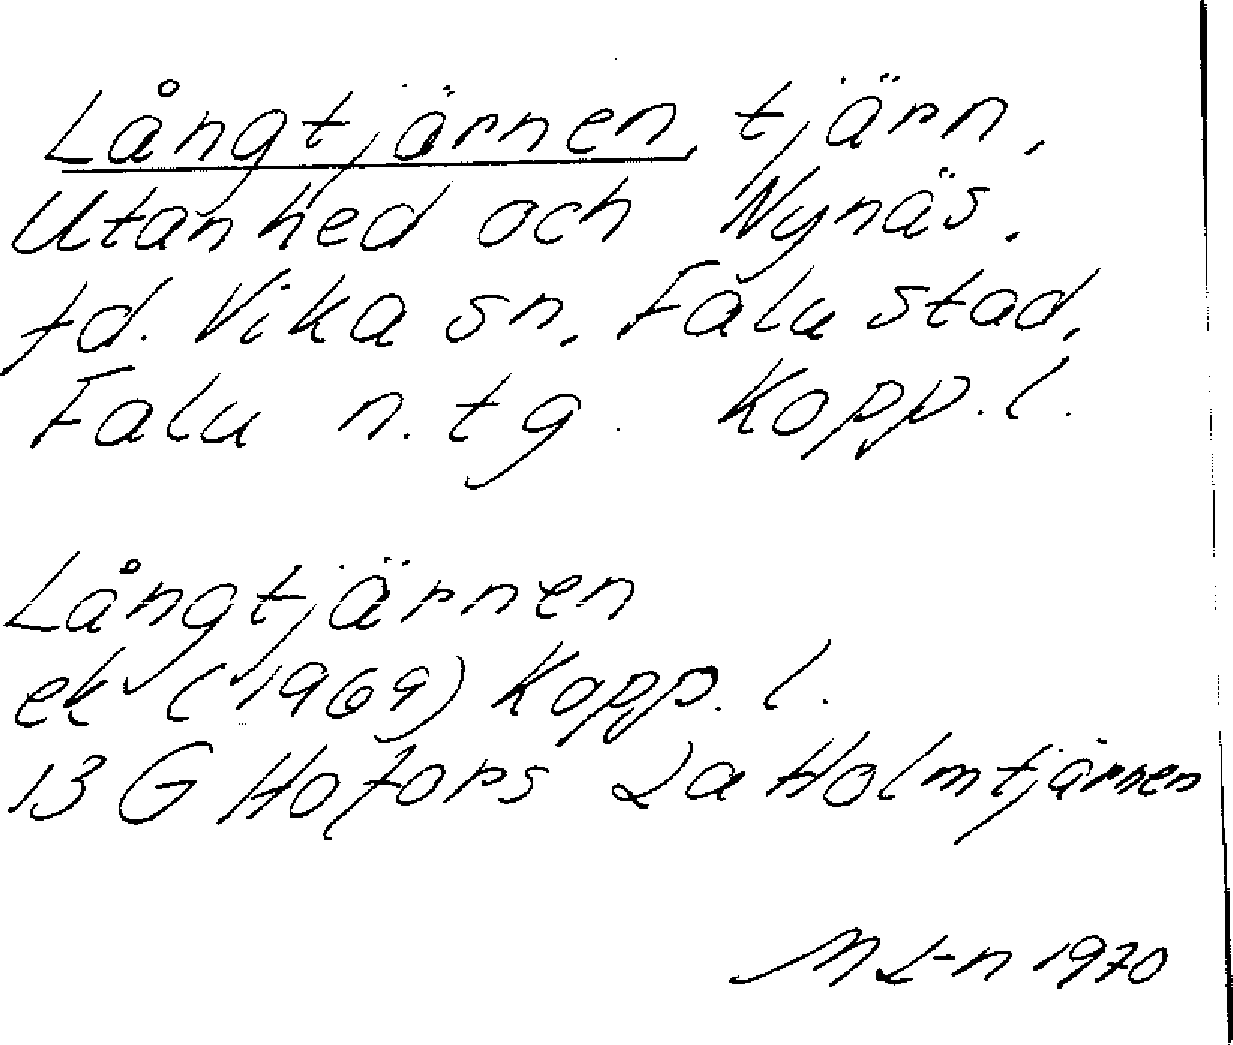 Långtjärnen, tjärn,
Utanhed och Nynäs,
fd. Vika sn, Falu stad,
Falu n. tg. Kopp. l.
Långtjärnen
ek (1969) Kopp. l.
13 G Hofors 2a Holmtjärnen
M L-n 1970